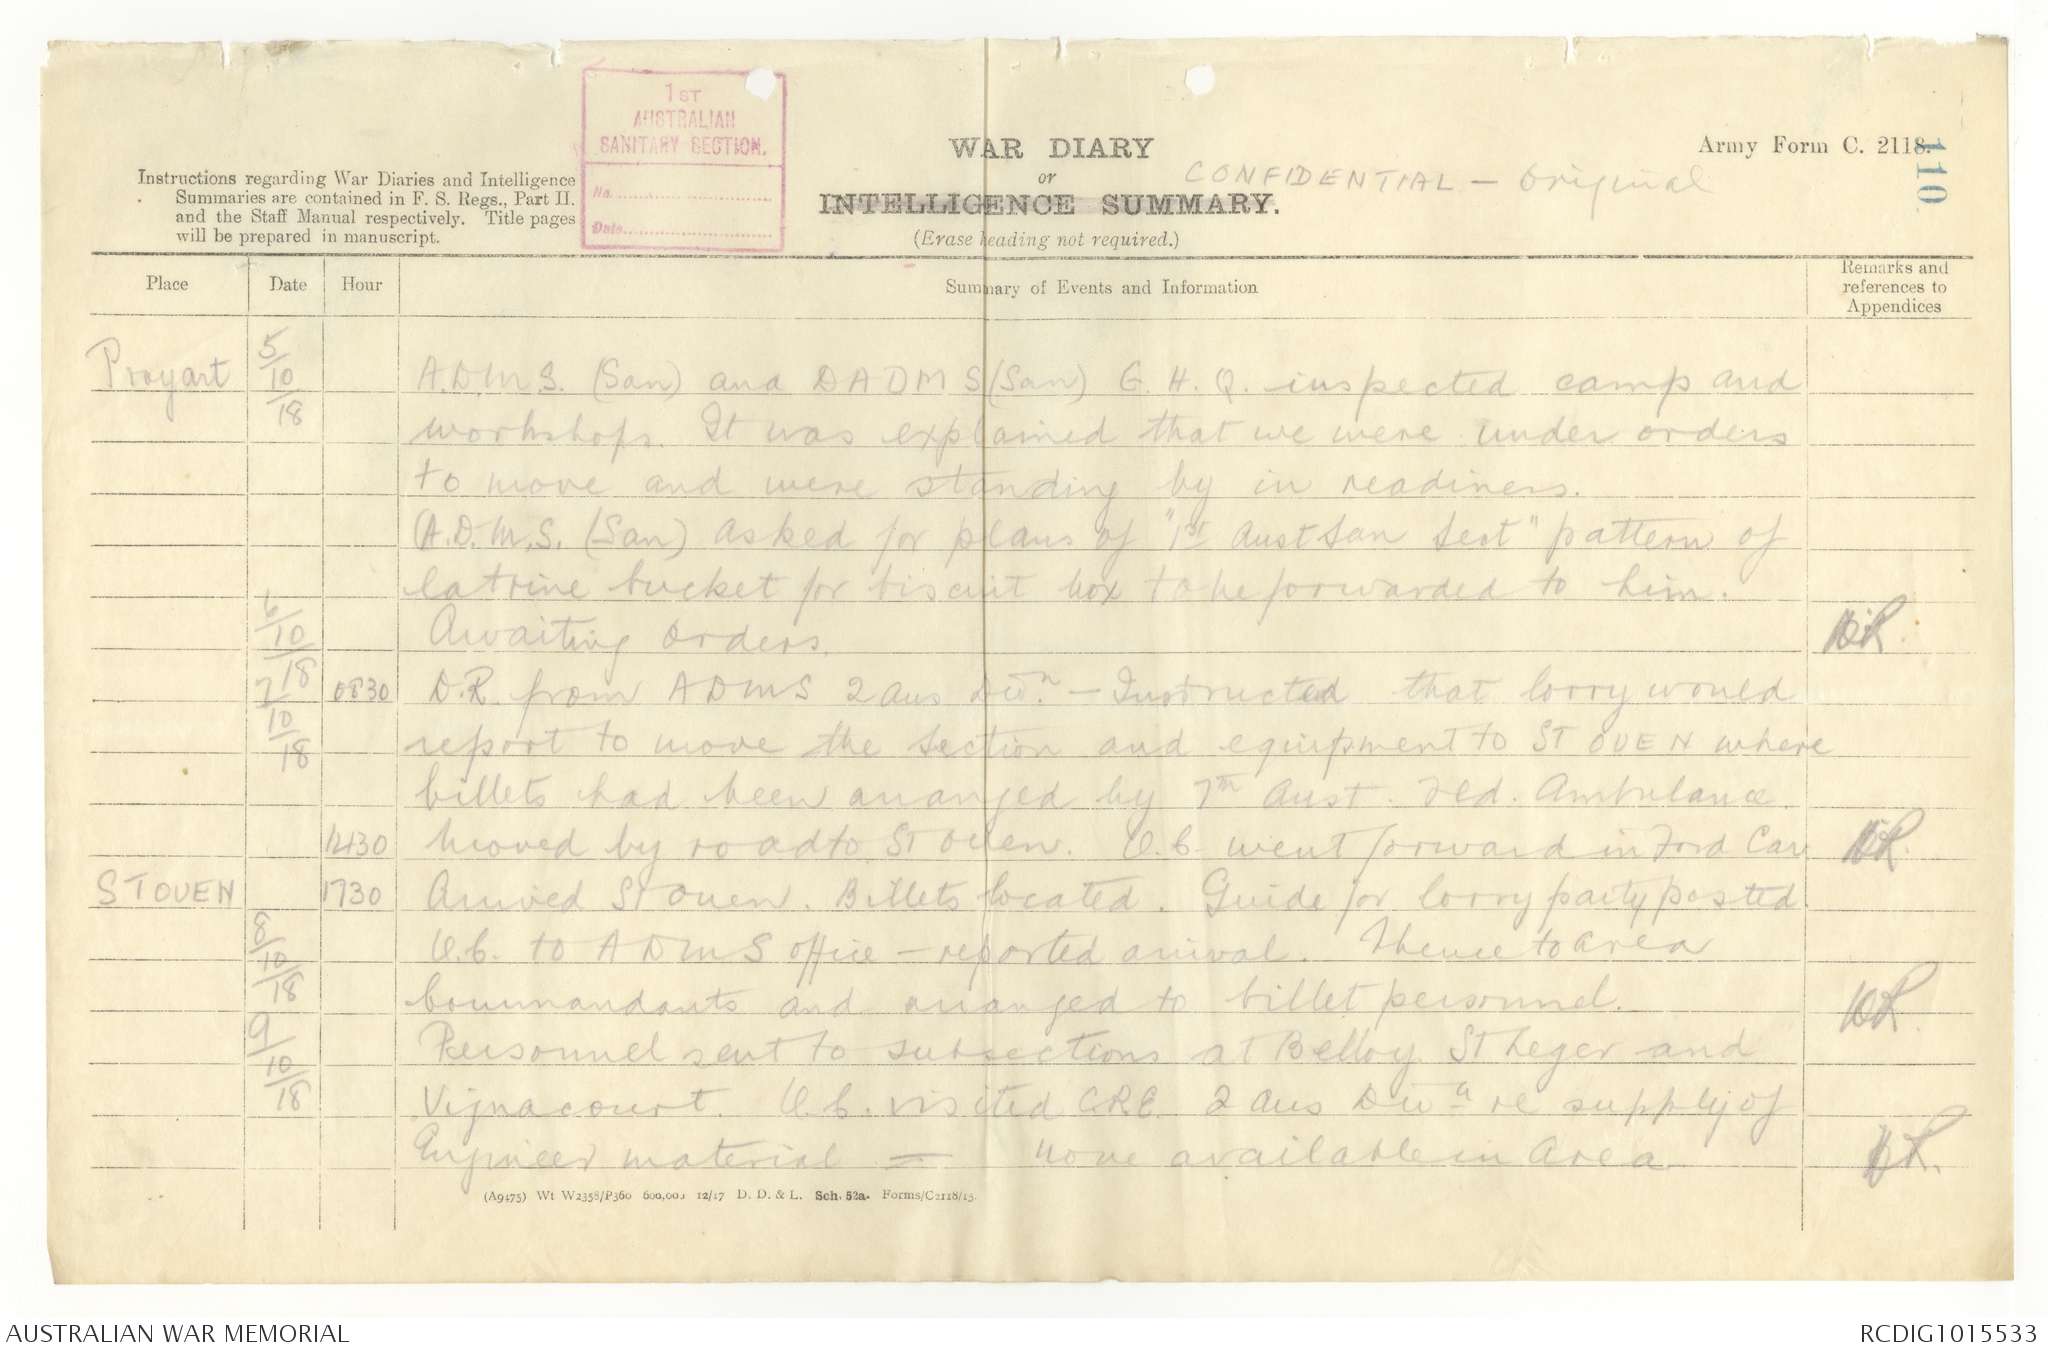 1ST
AUSTRALIAN
SANITARY SECTION.
No.
Date
WAR DIARY
or
INTELLIGENCE SUMMARY.
(Erase heading not required.)
CONFIDENTIAL - Original
Army Form C. 2118.
110
Instructions regarding War Diaries and Intelligence
Summaries are contained in F. S. Regs., Part II.
and the Staff Manual respectively. Title pages
will be prepared in manuscript.
Place Date Hour Summary of Events and Information Remarks and references to Appendices
Proyart 5/10/18 A.D.M.S. (San) and DADMS (San) G.H.Q. inspected camp and
workshops. It was explained that we were under orders
to move and were standing by in readiness.
(A.D.M.S. (San) asked for plans of "1st Aust San Sect" pattern of
latrine bucket for biscuit box to be forwarded to him.
6/10/18 Awaiting orders.
7/10/18 0830 D.R. from ADMS 2 Aus Divn. - Instructed that lorry would
report to move the section and equipment to ST OUEN where
billets had been arranged by 7th Aust. Fld. Ambulance.
1430 Moved by road to St Ouen. O.C. went forward in Ford Car
ST OUEN 1730 Arrived St Ouen. Billets located. Guide for lorry party posted.
8/10/18 O.C. to ADMS office - reported arrival. Thence to Area
Commandants and arranged to billet personnel.
9/10/18 Personnel sent to subsections at Belloy St Leger and
Vignacourt. O.C. visited CRE 2 Aus Divn re supply of
Engineer material = none available in Area
(A9475) Wt W2358/P360 600,000 12/17 D. D. & L. Sch. 52a. Forms/C2118/15.
AUSTRALIAN WAR MEMORIAL
RCDIG1015533